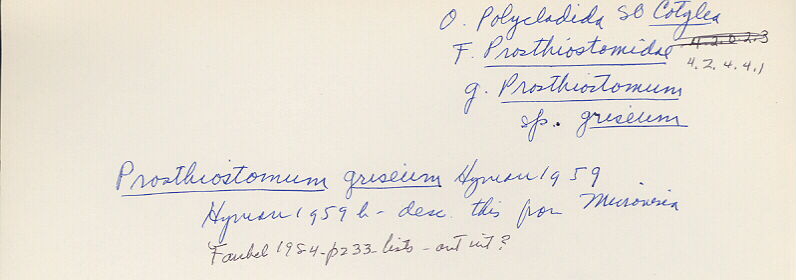 O. Polycladida SO Cotylea
F. Prosthiostomidae 4.2.0.2.3
4.2.4.4.1
g. Prosthiostomum
sp. griseum
Prosthiostomum griseum Hyman 1959
Hyman 1959 b - desc. this from Micronesia
Faubel 1984 - p 233 - lists - out int?